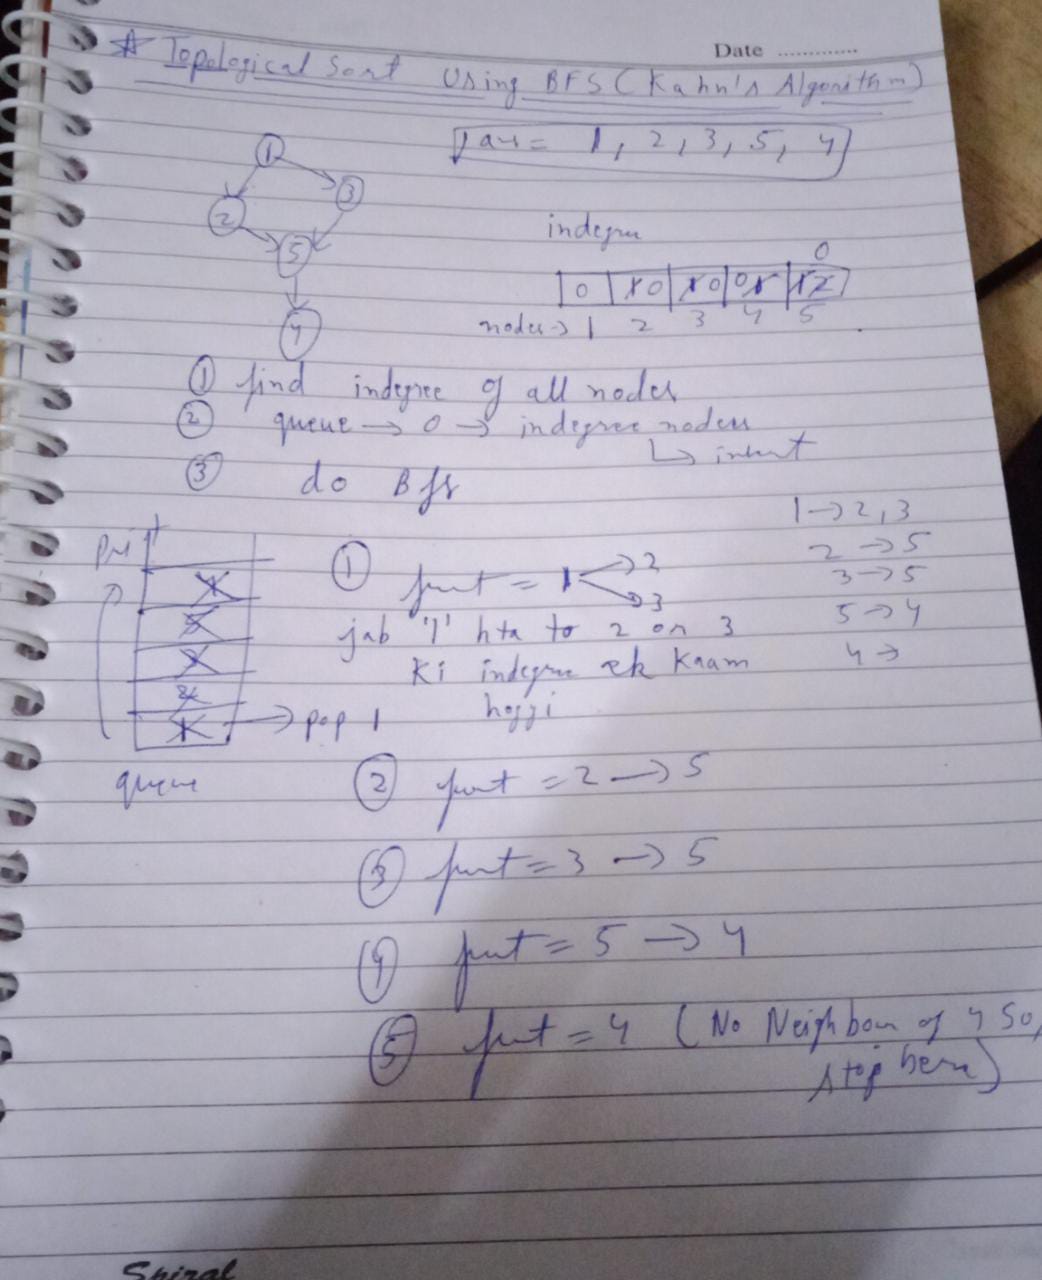 Date ............
☆ Topological Sort Using BFS (Kahn's Algorithm)
ans = 1, 2, 3, 5, 4
1
3
2
5
4
indegree
0
0 1 0 1 0 0 1 1 2
nodes-> 1 2 3 4 5
① find indegree of all nodes
② queue -> 0 -> indegree nodes
↳ insert
③ do Bfs
1->2,3
2->5
3->5
5->4
4->
4
5
3
2
1 -> pop 1
queue
① frnt = 1 ->2
->3
jab '1' hta to 2 or 3
ki indegree ek kaam
hoggi
② frnt = 2 -> 5
③ frnt = 3 -> 5
④ frnt = 5 -> 4
⑤ frnt = 4 (No Neighbour of 4 So,
stop here)
Spiral